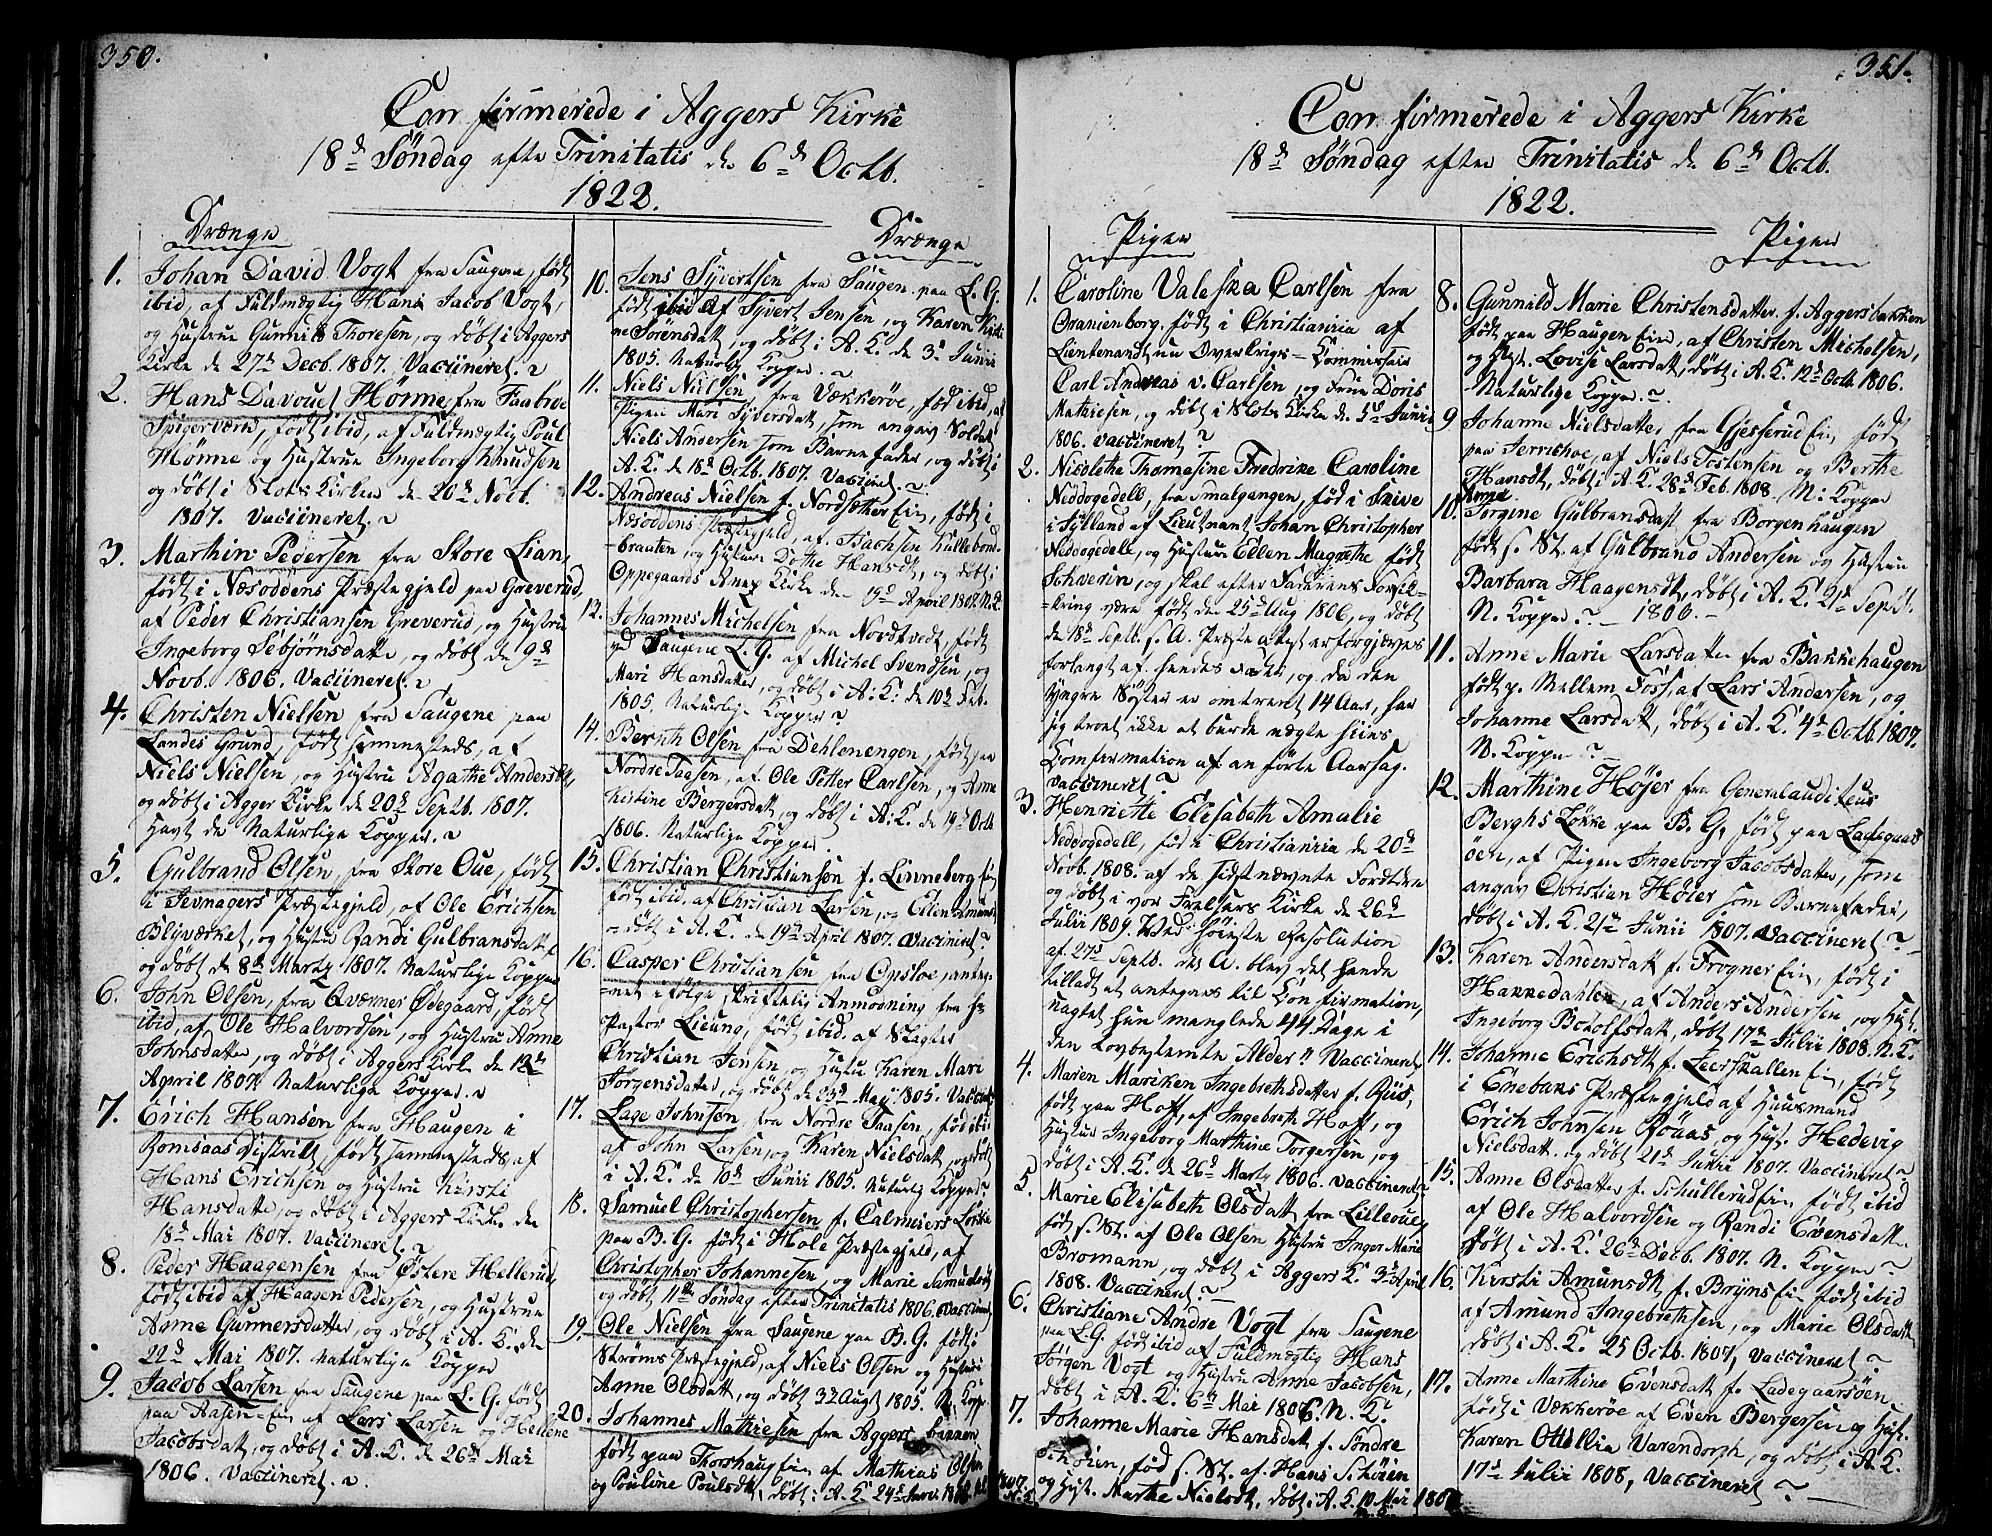 350.
Confirmerede i Aggers Kirke
18de Søndag efter Trinitatis de 6de Octb.
1822.
Drænge
1. Johan David Vogt fra Saugene, født
ibid, af Fuldmægtig Hans Jacob Vogt,
og Hustrue Gunnild Thoresen, og døbt i Aggers
Kirke de 27de Decb. 1807. Vacciineret.
2. Hans Davouet Mønne fra Faabroe
Spigerværk, født ibid, af Fuldmægtig Poul
Mønne og Hustrue Ingeborg Knudsen
og døbt i Slots Kirken de 20de Novb.
1807. Vacciineret.
3. Marthin Pedersen fra Store Lian,
født i Næsoddens Præstegjeld paa Greverud,
af Peder Christiansen Greverud, og Hustrue
Ingeborg Sebjørnsdatte, og døbt de 9de
Novb. 1806. Vacciineret.
4. Christen Nielsen fra Saugene paa
Landes Grund, født sammesteds, af
Niels Nielsen, og Hustru Agathe Andersdt,
og døbt i Agger Kirke de 20de Septb. 1807.
Havt de Naturlige Kopper.
5. Gulbrand Olsen, fra Store Oue, født
i Jevnagers Præstegjeld, af Ole Erichsen
Blyværket, og Hustrue Randi Gulbransdatt,
og døbt de 8de Marty 1807. Naturlige Kopper
6. John Olsen, fra Qværner Ødegaard, født
ibid, af Ole Halvordsen, og Hustru Anne
Johnsdatter, og døbt i Aggers Kirke de 12de
April 1807. Naturlige Kopper.
7. Erich Hansen fra Haugen i
Romsaas District, født sammesteds, af
Hans Erichsen og Hustru Kirsti
Hansdatte, og døbt i Aggers Kirke den
18de Mai 1807. Vacciineret.
8. Peder Haagensen fra Østere Hellerud,
født ibid af Haagen Pedersen, og Hustrue
Anne Gunnersdatter, og døbt i A. K. de
22de Mai 1807. Naturlige Kopper
9. Jacob Larsen fra Saugene paa L. G. født
paa Aasen=Ein af Lars Larsen og Hellene
Jacobsdatt, og døbt i A. K. de 26de Mai
1806. Vaccineret.
Drænge
10. Jens Syvertsen fra Saugen paa L. G.
født ibid af Syvert Jensen, og Karen Kirsti-
ne Sørensdatt, og døbt i A. K. de 3de Junii
1805. Naturlig Kopper.
11. Niels Nielsen fra Vækkerøe, fød ibid, af
Pigen Mari Syversdatt, som angav Soldat
Niels Andersen som Barnefader, og døbt i
A. K. de 18de Octb. 1807. Vaccinet.
12. Andreas Nielsen f. Nordsether Ein, født i
Næsoddens Præstegjeld, af Isachsen Kullebond-
-braaten, og Hustru Dotte Hansdt, og døbt i
Oppegaards Anex Kirke den 19de April 1807. N. K.
13. Johannes Michelsen fra Nordtvedt, født
ved Saugene L. G. af Michel Svendsen, og
Mari Hansdatter, og døbt i A. K. de 10de Feb.
1805. Naturlige Kopper.
14. Bernth Olsen fra Dehlenengen, født paa
Nordre Taasen, af Ole Petter Carlsen, og Anne
Kistine Bergersdatt, og døbt i A. K. de 19de Octb
1806. Naturlig Kopper.
15. Christian Christiansen f. Linneberg Ein
født ibid, af Christian Larsen, og Ellen
døbt i A. K. de 19de April 1807. Vaccineret
16. Casper Christiansen fra Opsloe, anteg-
=net ifølge skriftelig Anmodning fra Hr
Pastor Lieung, født ibid. af Slagter
Christian Jensen, og Hustru Karen Mari
Jørgensdatter, og døbt de 23de Maji 1805. Vaccineret
17. Lage Johnsen, fra Nordre Taasen, fød ibid
af John Larsen, og Karen Nielsdatt, og døbt
i A. K. de 10de Junii 1805. Naturlig Kopper
18. Samuel Christophersen f. Calmeiers Løkke
paa B. G. født i Hole Præstegjeld, af
Christopher Johannesen, og Marie Samuelsdt
og døbt 11te Søndag efter Trinitatis 1806. Vaccineret
19. Ole Nielsen fra Saugene paa B. G. født i
Strøms Præstegjeld, af Niels Olsen og Hustru
Anne Olsdatt, og døbt 3de Augst 1805. N. Kopp
20. Johannes Mathiesen fra Aggers
født paa Thorshaug Ein af Mathias Olsen
og Pouline Poulsdt, døbt i A. K. 24de
351.
Confirmerede i Aggers Kirke
18de Søndag efter Trinitatis de 6de Octb.
1822.
Piger
1. Caroline Valeska Carlsen fra
Oranienborg. født i Christiania af
Lieutenandt nu Overkrigs-Commissair
Carl Andreas v. Carlsen, og Frue Doris
Mathiesen, og døbt i Slots Kirke de 5te Junii
1806. Vaccineret
2. Nicolethe Thomasine Fredrike Caroline
Neddegedell, fra Smalgangen, fød i Skive
i Jylland af Lieutnant Johan Christopher
Neddegedell, og Hustrue Ellen Magrethe født
Schverin, og skal efter Faderens Forsik-
-kring være født den 25de Aug 1806, og døbt
de 18de Septb. s. A. Præste attest er forgjæves
forlangt af hendes Fader, og da den
yngre Søster er omtrent 14 Aar, har
jeg troet ikke at burde nægte hiins
Comfirmation af an førte Aarsag.
Vaccineret
3. Henriette Elisabeth Amalie
Neddegedell, fød i Christiania de 20de
Novb. 1808. af de sidstnævnte Forældre
og døbt i vor Frelsers Kirke de 26de
Julii 1809. Ved høieste Resolution
af 27de Septb. des A. blev det hende
tilladt at antegnes til Confirmation,
uagtet hun manglede 44 Dage i
den Lovbestemte Alder " Vaccineret
4. Maren Mariken Ingebrethsdatter f. Riis,
født paa Hoff, af Ingebreth Hoff, og
Hustrue Ingeborg Marthine Torgersen, og
døbt i A. K. de 26de Marty 1806. Vaccineret
5. Marie Elisabeth Olsdatt fra Lilleoue,
født s. St. af Ole Olsen Hustru Inger Marie
Bromann, og døbt i Aggers K. 3de April
1808. Vaccineret
6. Christiane Andre Vogt fra Saugene
paa L. G. født ibid af Fuldmægtig Hans
Jørgen Vogt og Hustrue Anne Jacobsen,
døbt i A. K. 6te Mai 1806. N. K.
7. Johanne Marie Hansdatt f. Søndre
Schøien, fød s. St. af Hans Schøien
og Hust. Marthe Nielsdt, døbt i A. K. 10 Mai 1807
Piger
8. Gunnild Marie Christensdatter f. Aggersbakken
født paa Haugen Ein, af Christen Michelsen,
og Hust. Lovise Larsdatt, døbt i A. K. 12te Octb. 1806.
Naturlige Kopper.
9 Johanne Nielsdatter, fra Gjesserud Ein født
paa Jerrishoe, af Niels Tostensen og Berthe
Hansdt, døbt i A. K. 28de Feb. 1808. N: Kopper
10. Anne Jorgine Gulbransdatt fra Borgenhaugen
født s. St. af Gulbrand Andersen og Hustru
Barbara Haagensdt, døbt i A. K. 21de Septb.
N. Kopper. - 1806. -
11. Anne Marie Larsdatter fra Bakkehaugen
født p. Mellem Foss, af Lars Andersen, og
Johanne Larsdatt, døbt i A. K. 4de Octb. 1807.
N. Kopper
12. Marthine Højer fra Generalauditeur
Berghs Løkke paa B. G, født paa Ladegaards
øen, af Pigen Ingeborg Jacobsdatter, som
angav Christian Høier som Barnefader,
døbt i A. K. 21de Junii 1807. Vaccineret
13. Karen Andersdatt f. Frogner Ein, født i
Hakkedahlen, af Anders Andersen, og Hust.
Ingeborg Botolfsdatt, døbt 17de Julii 1808. N. K.
14. Johanne Erichsdt f. Leerskallen Ein, født
i Enebaks Præstegjeld af Huusmand
Erich Johnsen Roaas, og Hust. Hedevig
Nielsdatt. og døbt 21de Junii 1807. Vaccineret
15. Anne Olsdatter f. Schullerud Ein født ibid
af Ole Halvordsen og Randi Evensdatt.
døbt i A. K. 26de Decb. 1807. N. Kopper
16. Kirsti Amunsdt f. Bryns Ein født ibid
af Amund Ingebrethsen, og Marie Olsdatt
døbt i A. K. 25 Octb. 1807, Vaccineret
17. Anne Marthine Evensdatt f. Ladegaarsøen
født i Vækkerøe af Even Bergersen og Hust.
Karen Ottillia Varendorph, og døbt i A. K.
17de Julii 1808, Vaccineret